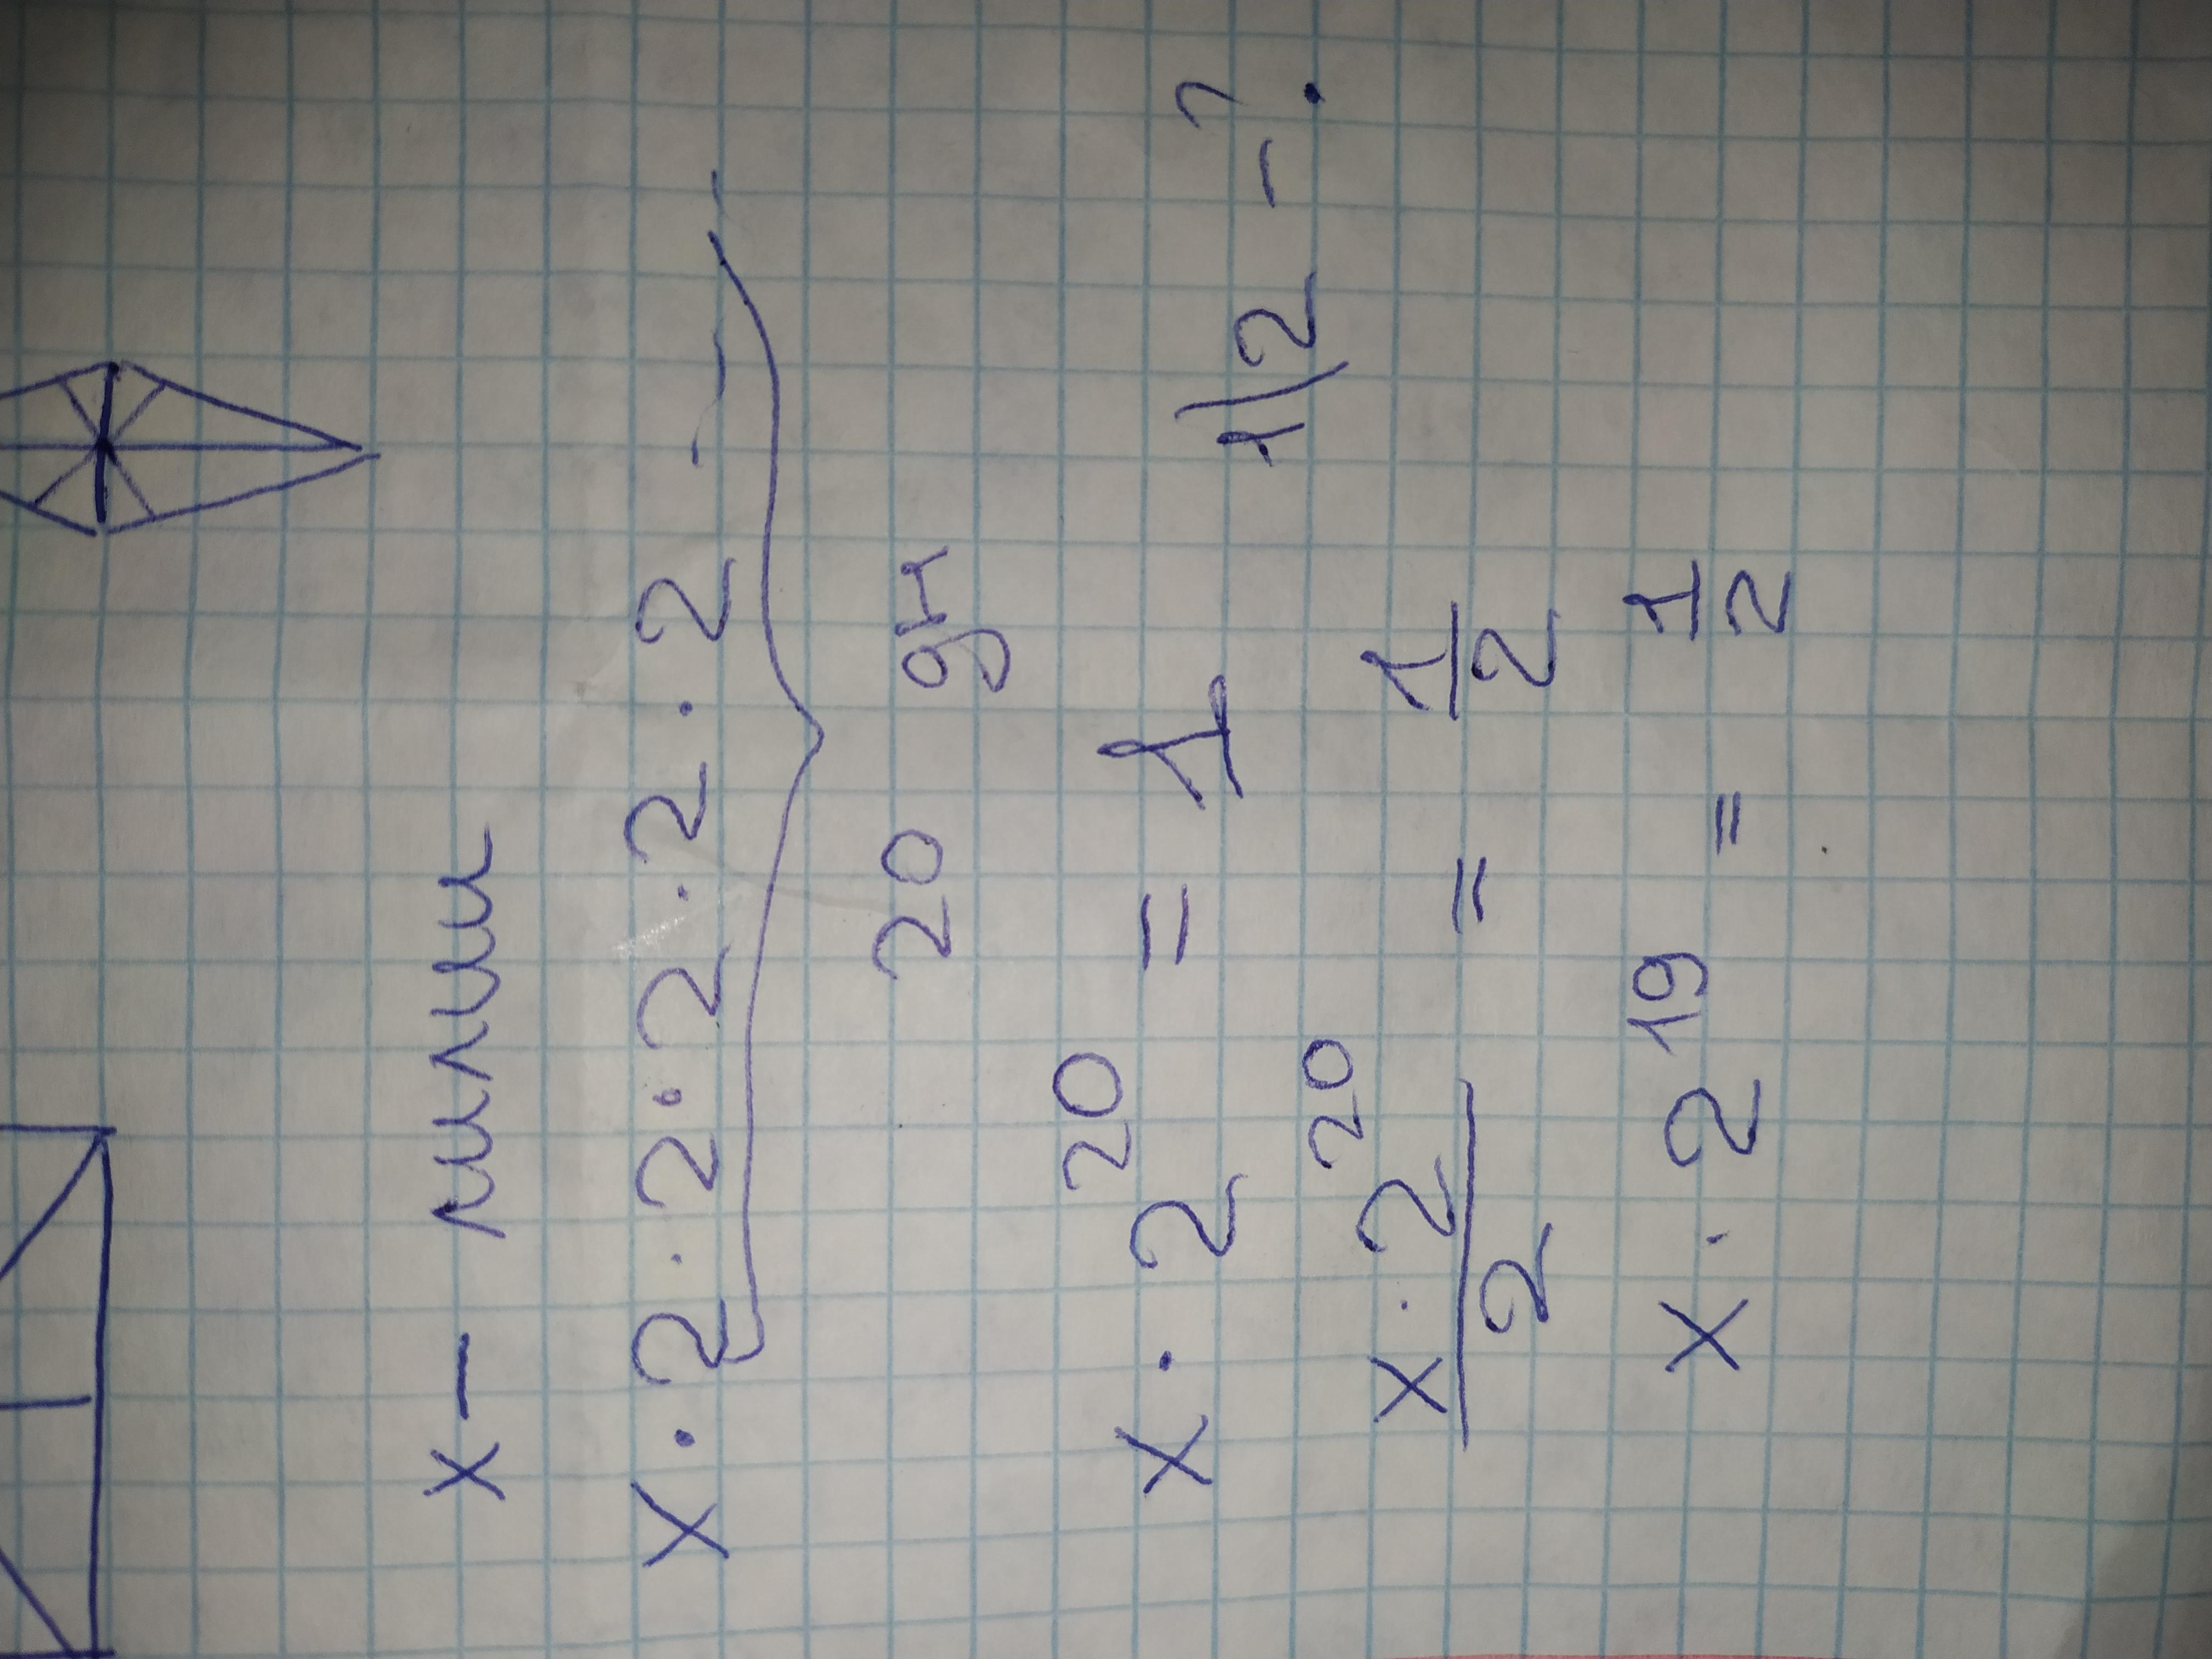 x — лилии
x · 2 · 2 · 2 · 2 · 2 · 2 - - -
20 дн
x · 2²⁰ = 1
1/2 - ?
x · 2²⁰ / 2 = 1/2
x · 2¹⁹ = 1/2